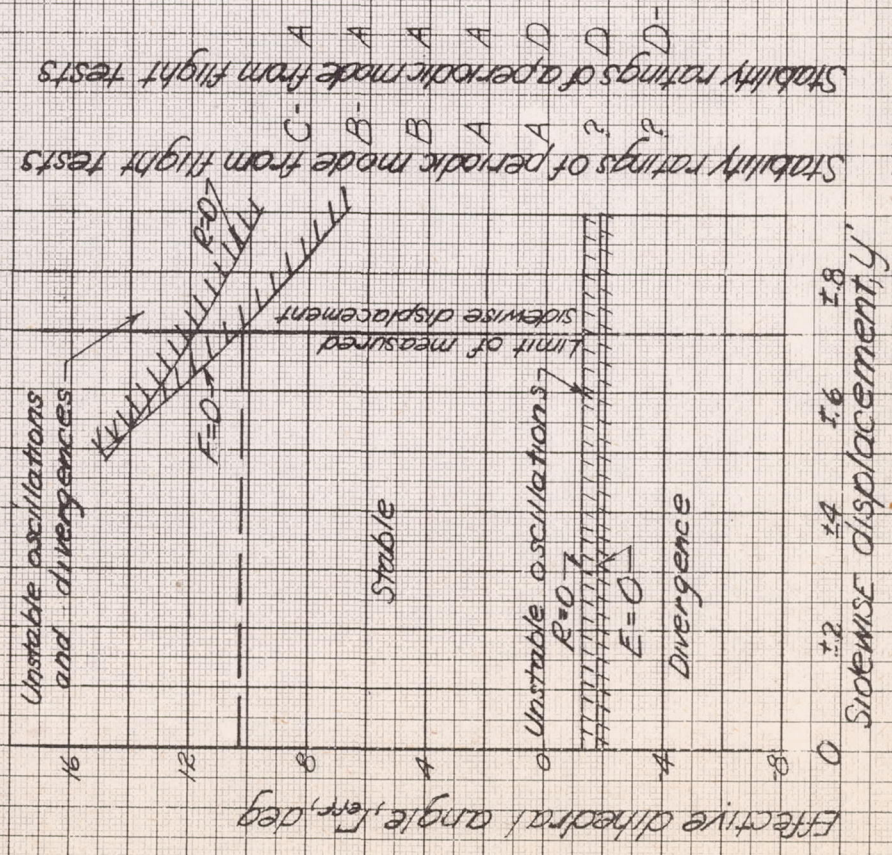 Stability ratings of aperiodic mode from flight tests
A A A A D D D-
Stability ratings of periodic mode from flight tests
C- B- B A A ? ?
Unstable oscillations
and divergences
R=0
F=0
Limit of measured
sidewise displacement
Stable
Unstable oscillations
R=0
E=0
Divergence
Effective dihedral angle, Γeff, deg
16
12
8
4
0
-4
-8
0 ±.2 ±.4 ±.6 ±.8
Sidewise displacement, y'